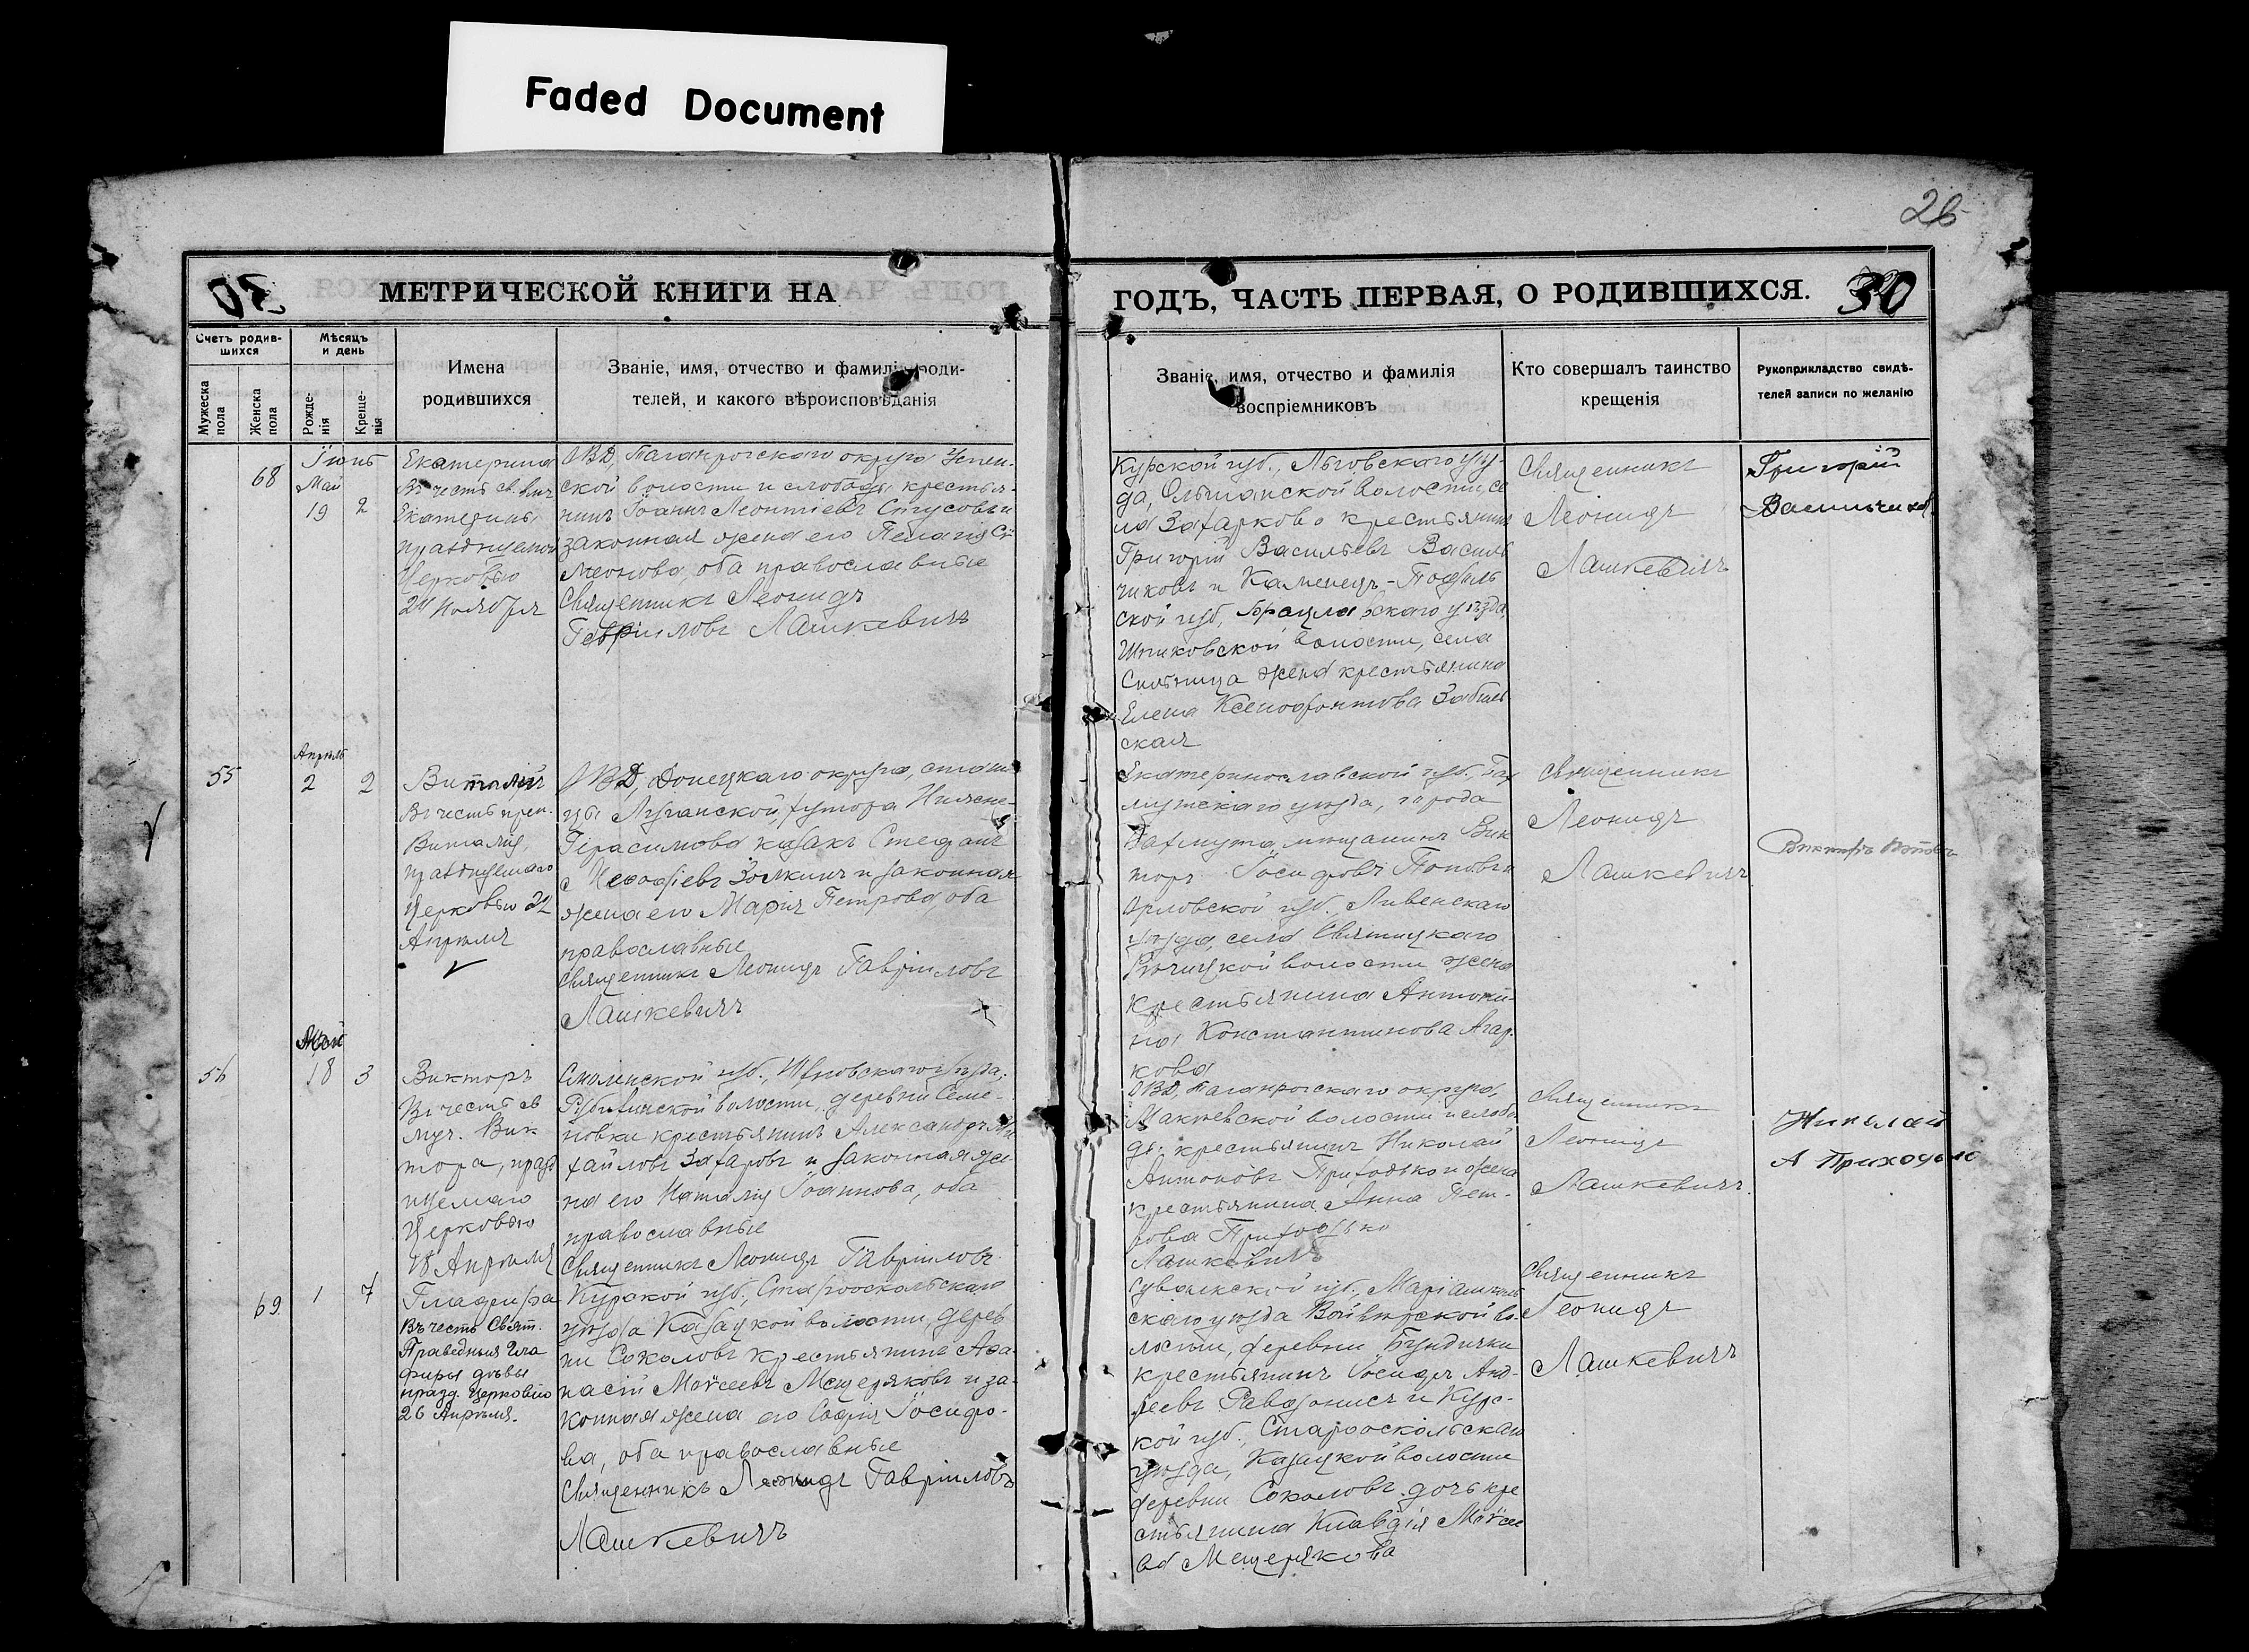 Faded Document
26
МЕТРИЧЕСКОЙ КНИГИ НА
ГОДЪ, ЧАСТЬ ПЕРВАЯ, О РОДИВШИХСЯ.
30
Счетъ родив-
шихся
Мѣсяцъ
и день
Мужеска
пола
Женска
пола
Рожде-
нія
Креще-
нія
Имена
родившихся
Званіе, имя, отчество и фамилія роди-
телей, и какого вѣроисповѣданія
Званіе, имя, отчество и фамилія
воспріемниковъ
Кто совершалъ таинство
крещенія
Рукоприкладство свидѣ-
телей записи по желанію
68
Іюнь
Май
19
2
Екатерина
Въ честь св. 
Екатерины
празднуемой
Церковью
24 Ноября
ОВД, Таганрогскаго округа Успен-
ской волости и слободы крестья-
нинъ Іоаннъ Леонтіевъ и
законная жена его Пелагія Си-
меонова, оба православные
Священникъ Леонидъ
Гавріиловъ Лашкевичъ
Курской губ., Льговскаго уѣз-
да, Ольшанской волости, се
ла Захарково крестьянинъ
Григорій Васильевъ Василь
чиковъ и Каменецъ-Подоль
ской губ., Брацлавскаго уѣзда,
Шпиковской волости, села
жена крестьянина
Елена Ксенофонтова
ская
Священникъ
Леонидъ
Лашкевичъ
Григорій
Васильчиков
55
Апрѣль
2
2
Виталій
Въ честь преп.
Виталія,
празднуемаго
Церковью 22
Апрѣля
ОВД, Донецкаго округа, стани
цы Луганской, хутора Нижне-
Герасимова казакъ Стефанъ
и законная
жена его Марія Петрова, оба
православные
Священникъ Леонидъ Гавріиловъ
Лашкевичъ
Екатеринославской губ., Бах
мутскаго уѣзда, города
Бахмута, мѣщанинъ Вик
торъ Іосифовъ Поповъ и
Орловской губ., Ливенскаго
уѣзда, села
волости жена
крестьянина Антони-
на Константинова Агар
кова
Священникъ
Леонидъ
Лашкевичъ
Викторъ Поповъ
56
Май
18
3
Викторъ
Въ честь св
муч. Вик
тора, празд
нуемаго
Церковью
18 Апрѣля
Смоленской губ., Юхновскаго уѣзда,
волости, деревни Семе-
новки крестьянинъ Александръ Ми
хайловъ Захаровъ и законная же
на его Наталія Іоаннова, оба
православные
Священникъ Леонидъ Гавріиловъ
Лашкевичъ
ОВД, Таганрогскаго округа,
Макѣевской волости и слобо
ды крестьянинъ Николай
Антоновъ Приходько и жена
крестьянина Анна Пет-
рова Приходько
Священникъ
Леонидъ
Лашкевичъ.
Николай
А Приходько
69
1
7
Глафира
Въ честь Свят.
Праведныя Гла
фиры дѣвы
празд. Церковію
26 Апрѣля.
Курской губ., Старооскольскаго
уѣзда Казацкой волости, дерев
ни Соколовъ крестьянинъ Аѳа-
насій Моѵсеевъ Мещеряковъ и за-
конная жена его Софія Іосифо-
ва, оба православные
Священникъ Леонидъ Гавріиловъ
Лашкевичъ
Сувалкской губ., Маріамполь
скаго уѣзда во-
лости, деревни
крестьянинъ Іосифъ Анд-
реевъ и Курс-
кой губ., Старооскольскаго
уѣзда, Казацкой волости
деревни Соколовъ дочь кре
стьянина Клавдія Моѵсее
ва Мещерякова
Священникъ
Леонидъ
Лашкевичъ